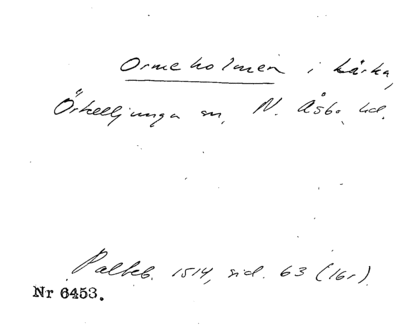 Ormeholmen i Lärka,
Örkelljunga sn, N. Åsbo hd.
Palteb. 1514, sid. 63 (16r).
Nr 6453.